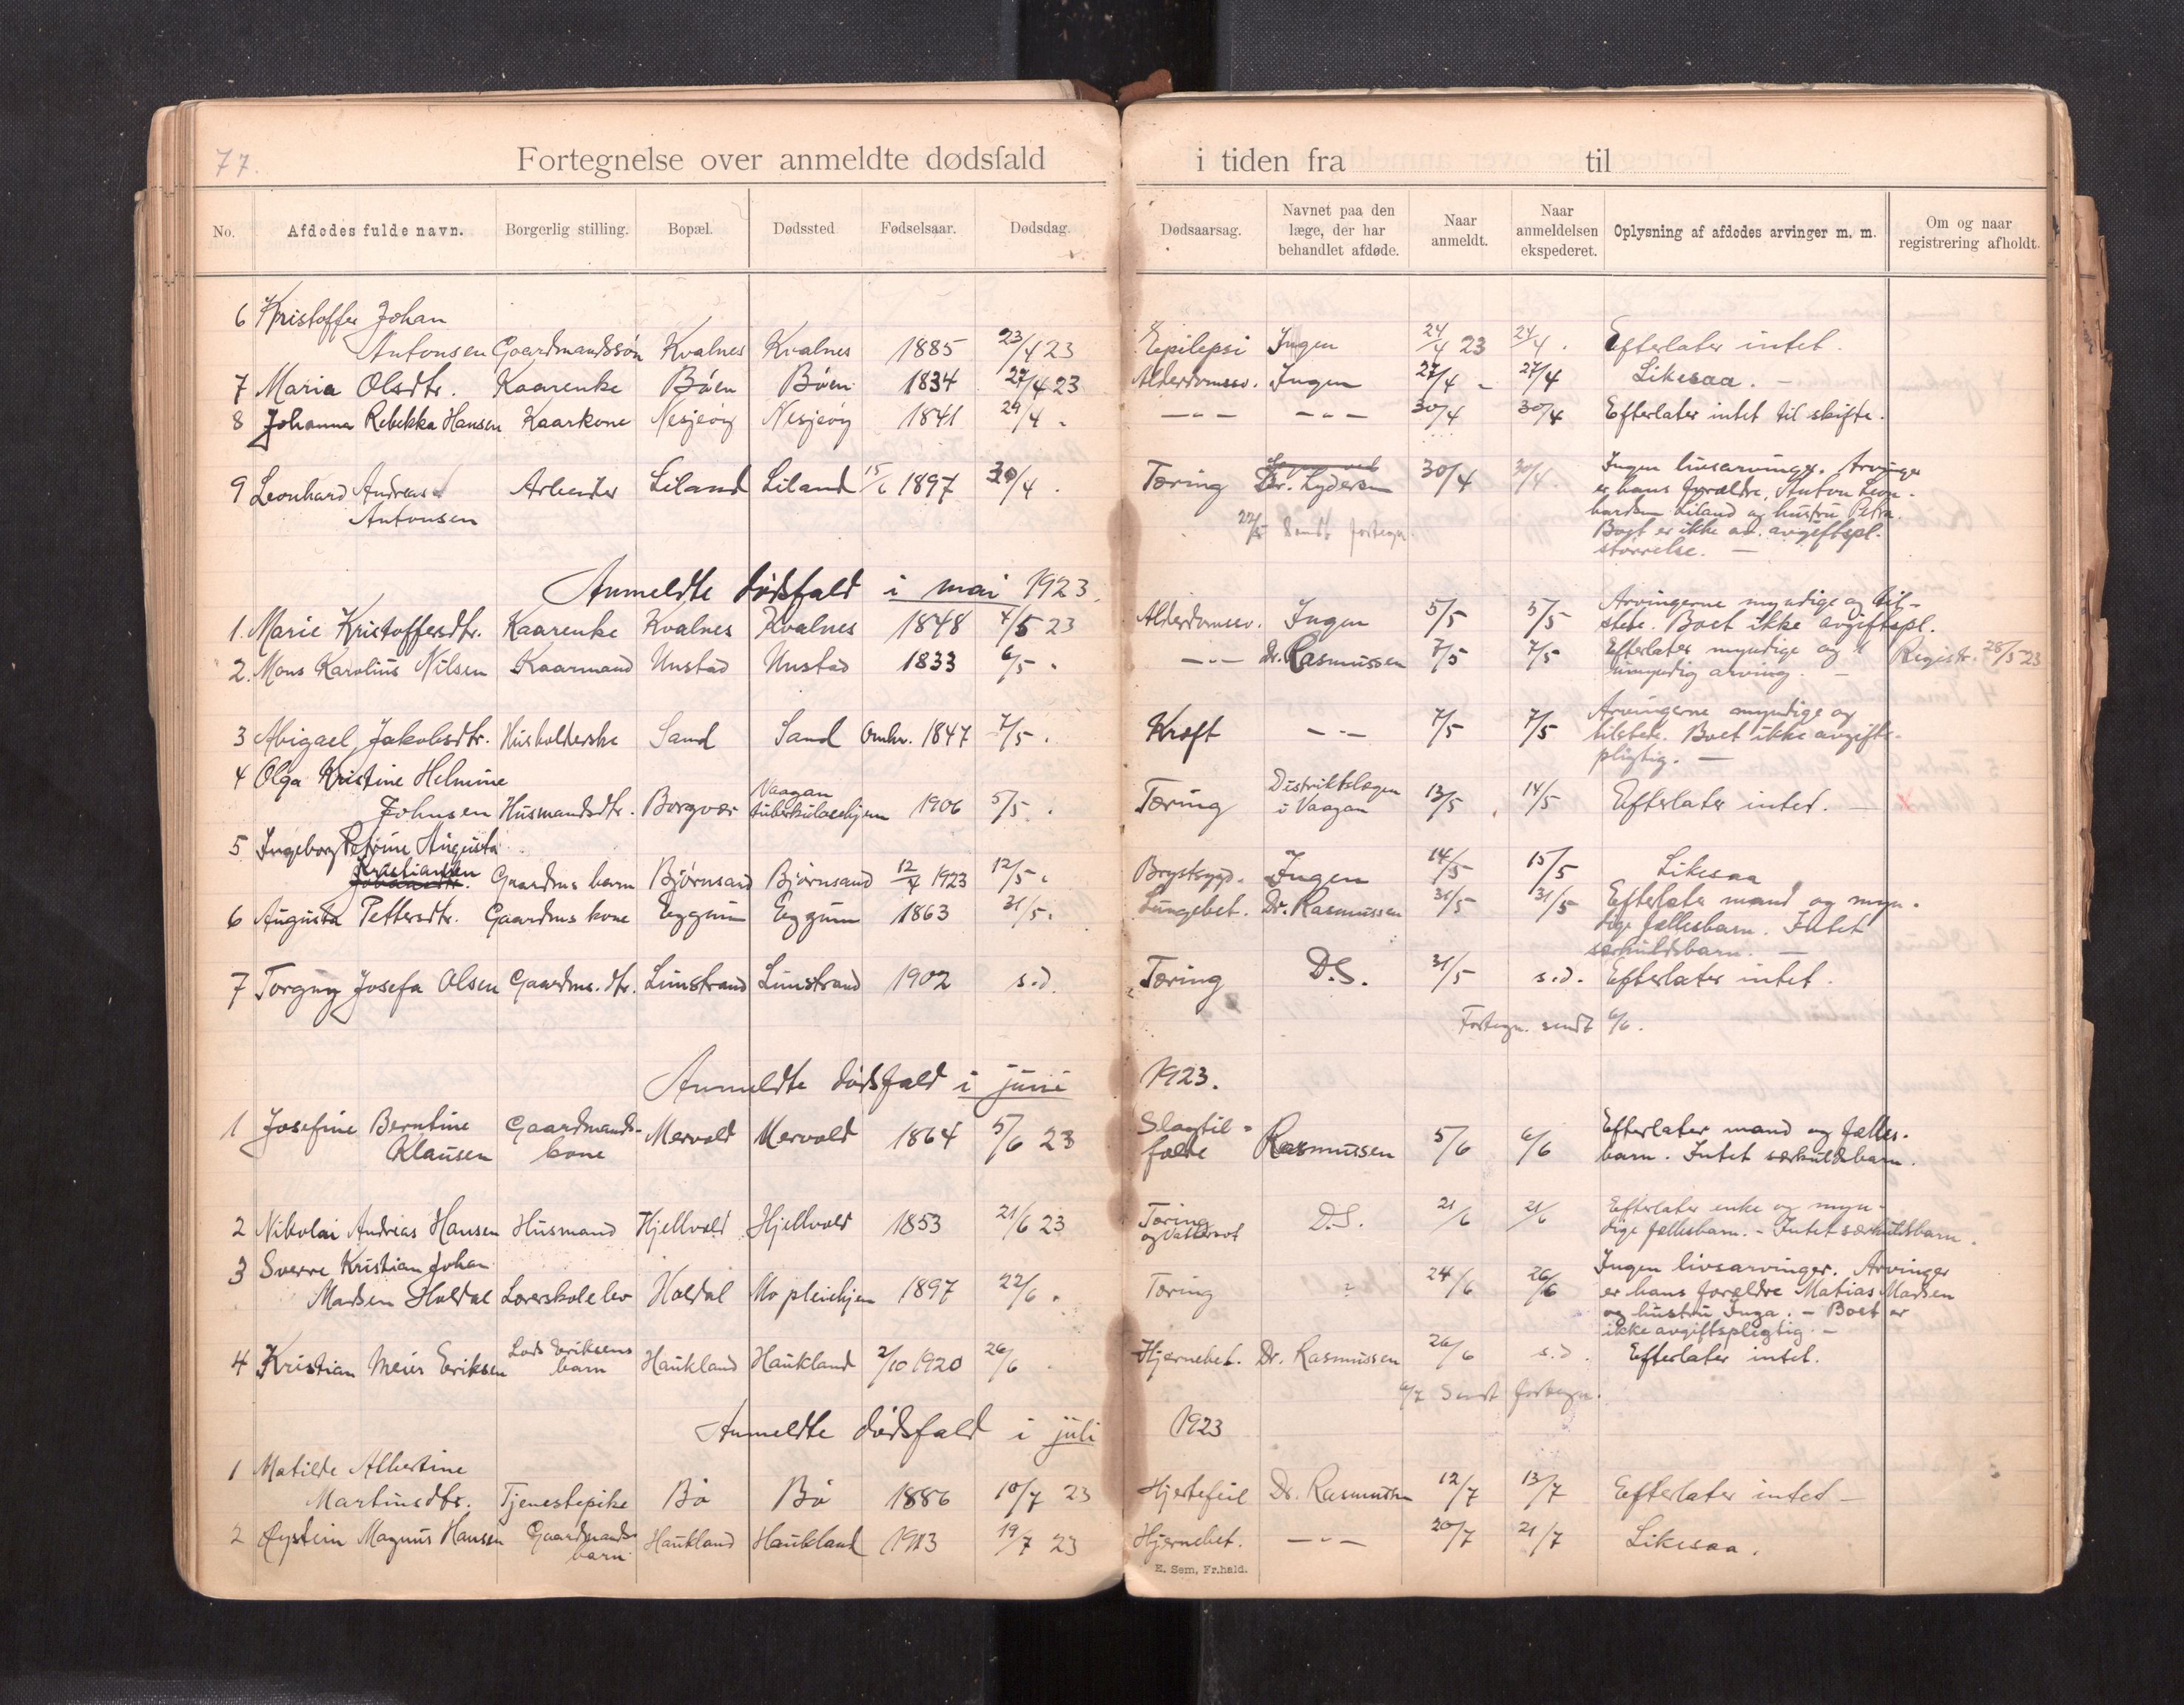 77.
Fortegnelse over anmeldte dødsfald i tiden fra til
No. Afdødes fulde navn. Borgerlig stilling. Bopæl. Dødssted Fødselsaar. Dødsdag. Dødsaarsag. Navnet paa den læge, der har behandlet afdøde. Naar anmeldt. Naar anmeldelsen ekspederet. Oplysning af afdødes arvinger m. m. Om og naar registrering afholdt.
6 Kristoffer Johan
Antonsen Gaardmandssøn Kvalnes Kvalnes 1885 23/4 23 Epilepsi Ingen 24/4 23 24/4 . Efterlater intet.
7 Maria Olsdtr. Kaarenke Bøen Bøen 1834 27/4 23 Alderdomssv. Ingen 27/4 - 27/4 Likesaa. -
8 Johanna Rebekka Hansen Kaarkone Nesjeøy Nesjeøy 1841 29/4 - — " — — " — 30/4 30/4 Efterlater intet til skifte.
9 Leonhard Andreas Arbeider Liland Liland 15/6 1897 30/4 . Tæring Dr. Lydersen 30/4 30/4. Ingen livsarvinger. Arvinger
Antonsen
er hans forældre, Anton Leon-
hardsen Liland og hustru Petra.
22/5 Sendt fortegn.
Boet er ikke av avgiftspl.
størrelse. —
Anmeldte dødsfald i mai 1923.
1. Marie Kristoffersdtr. Kaarenke Kvalnes Kvalnes 1848 4/5 23 Alderdomssv. Ingen 5/5 5/5 Arvingerne myndige og til-
stede. Boet ikke avgiftspl.
2. Mons Karolius Nilsen Kaarmand Unstad Unstad 1833 6/5 . — " — Dr. Rasmussen 7/5 7/5 Efterlater myndige og 1 Registr. 28/5 23
umyndig arving. —
3 Abigael Jakobsdtr. Husholderske Sand Sand Omkr. 1847 7/5 . Kræft — " — 7/5 7/5 Arvingerne myndige og
tilstede. Boet ikke avgifts-
pligtig. —
4 Olga Kristine Helmine
Johnsen Husmandsdtr. Borgvær Vaagan tuberkulosehjem 1906 5/5 . Tæring Distriktslægen i Vaagan 13/5 14/5 Efterlater intet. —
5 Ingeborg Petrine Augusta
Kristiansen Gaardms barn Bjørnsand Bjørnsand 12/4 1923 12/5 . Brystsygd. Ingen 14/5 15/5 Likesaa
6 Augusta Pettersdtr. Gaardms kone Eggum Eggum 1863 31/5. Lungebet. Dr. Rasmussen 31/5 31/5 Efterlater mand og myn-
dige fællesbarn. Intet
særkuldsbarn. —
7 Torgny Josefa Olsen Gaardms. dtr. Limstrand Limstrand 1902 s.d. Tæring D.S. 31/5 s.d. Efterlater intet.
Fortegn. sendt 6/6.
Anmeldte dødsfald i juni 1923.
1 Josefine Berntine Gaardmands- Mervold Mervold 1864 5/6 23 Slagtil- Rasmussen 5/6 6/6 Efterlater mand og fælles-
Klausen kone fælde barn. Intet særkuldsbarn.
2 Nikolai Andreas Hansen Husmand Hjellvold Hjellvold 1853 21/6 23 Tæring og Vattersot D.S. 21/6 21/6 Efterlater enke og myn-
dige fællesbarn. - Intet særkuldsbarn.
3 Sverre Kristian Johan
Madsen Holdal Lærerskoleelev Holdal Mo pleiehjem 1897 22/6 . Tæring ? 24/6 26/6 Ingen livsarvinger. Arvinger
er hans forældre Matias Madsen
og hustru Inga. - Boet er
ikke avgiftspligtig. -
4 Kristian Meier Eriksen Lars Eriksens barn Haukland Haukland 2/10 1920 26/6 . Hjernebet. Dr. Rasmussen 26/6 s.d. Efterlater intet.
6/7 Sendt fortegn.
Anmeldte dødsfald i juli 1923
1 Matilde Albertine
Martinsdtr. Tjenestepike Bø Bø 1886 10/7 23 Hjertefeil Dr. Rasmussen 12/7 13/7 Efterlater intet —
2 Øystein Magnus Hansen Gaardmands barn Haukland Haukland 1913 19/7 23 Hjernebet. — " — 20/7 21/7 Likesaa.
E. Sem, Fr.hald.